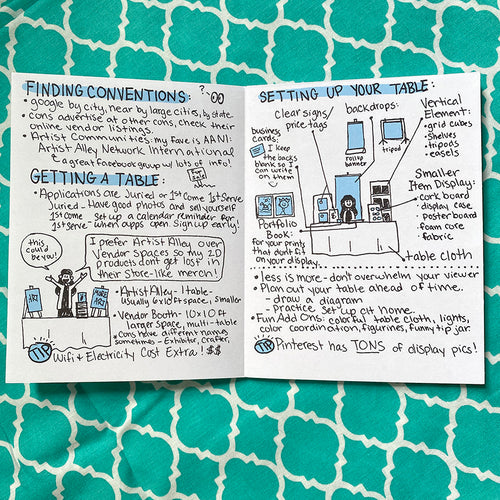 FINDING CONVENTIONS:
?
• google by city, near by large cities, by state
• cons advertise at other cons, check their
online vendor listings.
• Artist Communities: my fave is AANI:
Artist Alley Network International
a great facebook group w/ lots of info!
GETTING A TABLE:
• Applications are Juried or 1st Come 1st Serve
Juried - Have good photos and sell yourself
1st Come 1st Serve
set up a calendar reminder for
when apps open. Sign up early!
this could be you!
I prefer Artist Alley over
Vendor Spaces so my 2D
products don't get lost in
their store-like merch!
ART
ART
• Artist Alley - 1 table -
usually 6x10ft space, smaller
• Vendor Booth - 10x10 ft
larger space, multi-table
• Cons have different names
sometimes - Exhibitor, Crafter,
TIP
Wifi + Electricity Cost Extra! $$
SETTING UP YOUR TABLE:
clear signs/
price tags
backdrops:
rolling
banner
tripod
Vertical
Element:
• grid cubes
• Shelves
• tripods
• easels
business
cards:
I keep
the backs
blank so I
can write
on them
Portfolio
Book:
for your prints
that don't fit
on your display
Smaller
Item Display:
• cork board
• display case
• poster board
• foam core
• fabric
table cloth
• less is more - don't overwhelm your viewer
• Plan out your table ahead of time.
- draw a diagram
- practice set up at home.
• Fun Add Ons: colorful table cloth, lights,
color coordination, figurines, funny tip jar.
TIP
Pinterest has TONS of display pics!